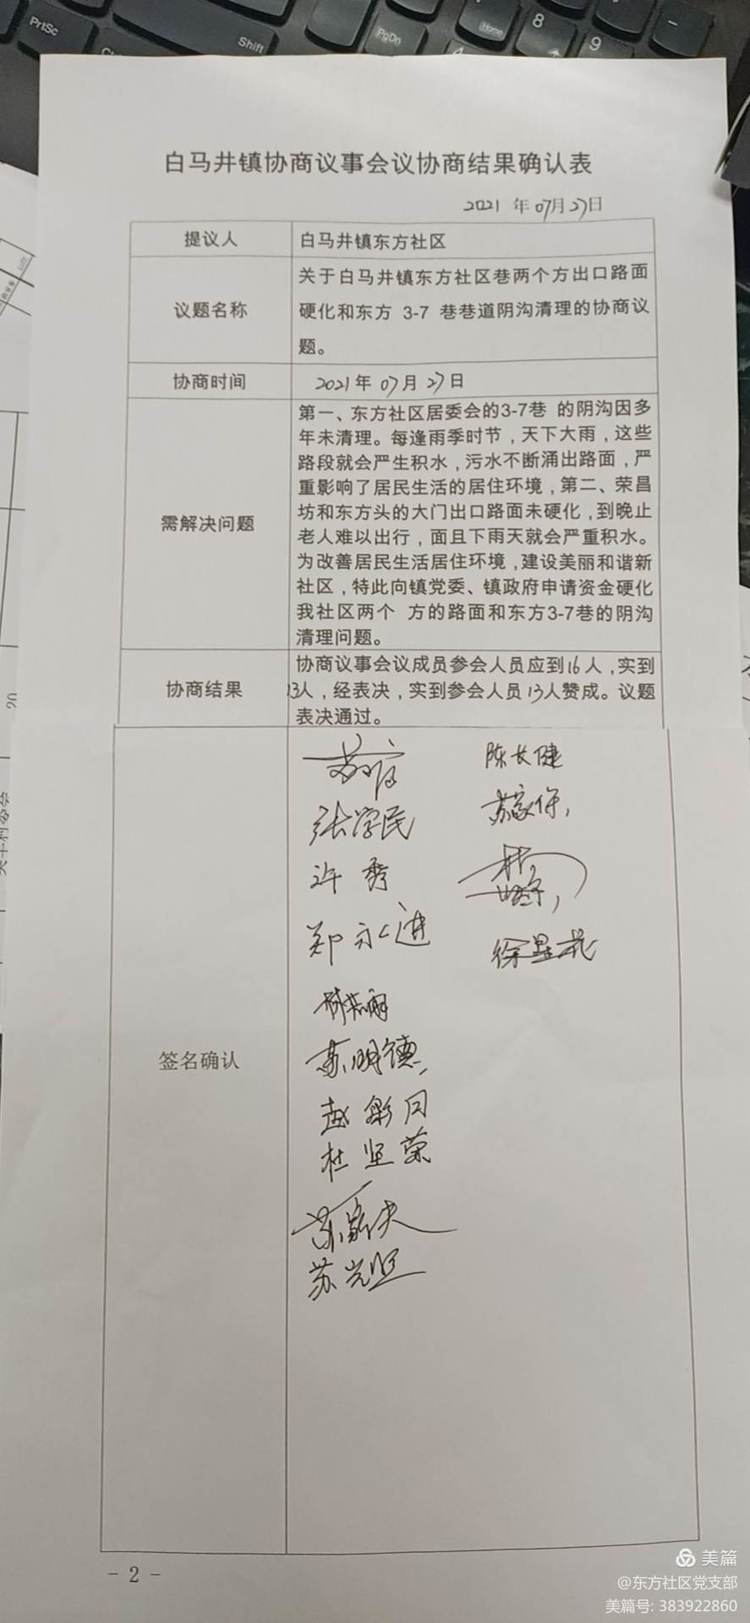 PrtSc
Shift
PgDn
Home
8
9
白马井镇协商议事会议协商结果确认表
2021年07月27日
提议人
白马井镇东方社区
议题名称
关于白马井镇东方社区巷两个方出口路面
硬化和东方 3-7 巷巷道阴沟清理的协商议
题。
协商时间
2021年07月27日
需解决问题
第一、东方社区居委会的3-7巷 的阴沟因多
年未清理。每逢雨季时节，天下大雨，这些
路段就会严生积水，污水不断涌出路面，严
重影响了居民生活的居住环境，第二、荣昌
坊和东方头的大门出口路面未硬化，到晚止
老人难以出行，面且下雨天就会严重积水。
为改善居民生活居住环境，建设美丽和谐新
社区，特此向镇党委、镇政府申请资金硬化
我社区两个 方的路面和东方3-7巷的阴沟
清理问题。
协商结果
协商议事会议成员参会人员应到16人，实到
13人，经表决，实到参会人员13人赞成。议题
表决通过。
签名确认
陈长健
张学民
苏家保,
许秀
郑永进
徐显花
苏明德,
赵彩月
杜坚荣
苏光坚
- 2 -
美篇
@东方社区党支部
美篇号: 383922860